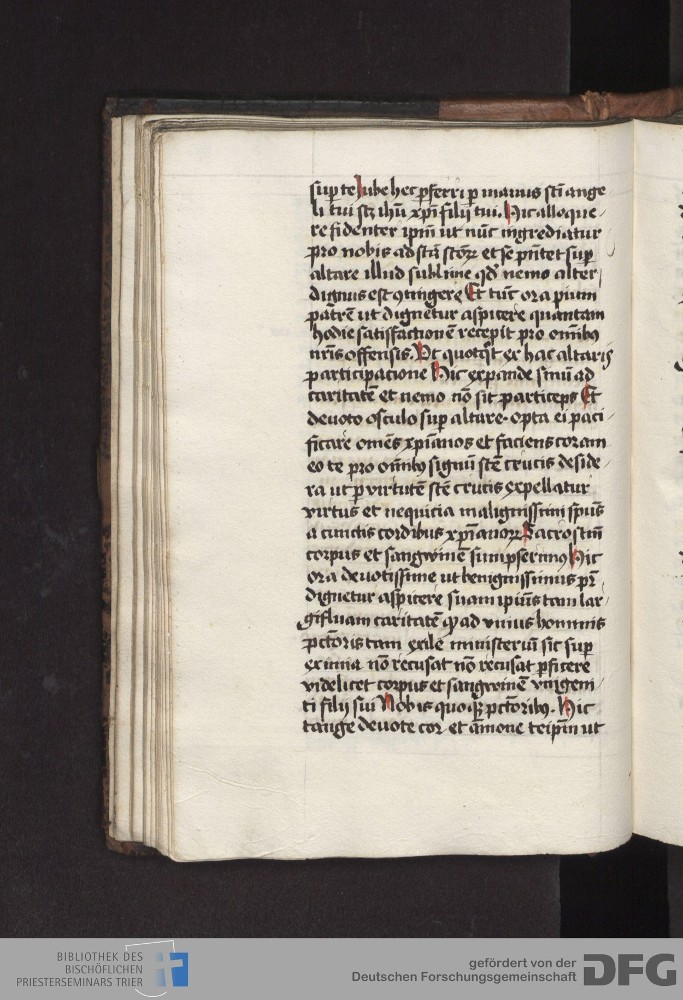 sup te Jube hec pferri p manus sti ange
li tui scz ihu xpi filij tui. Hic alloque
re fidenter ipm ut nuc ingrediatur
pro nobis ad sta scorz et se pntet sup
altare illud sublime qd nemo alter
dignus est 9tingere Et tuc ora pium
patre ut dignetur aspicere quantam
hodie satisfactione recepit pro omibus
nris offensis. Ut quotqt ex hac altaris
participacione Hic expande sinu ad
caritate et nemo no sit particeps Et
deuoto osculo sup altare. opta ei paci
ficare omes xpianos et faciens coram
eo te pro omibus signu ste crucis deside
ra ut p virtute ste crucis expellatur
virtus et nequicia malignissimi spus
a cunctis cordibus xpianorz Sacrostm
corpus et sangwine sumpserimus Hic
ora deuotissime ut benignissimus pr
dignetur aspicere suam ipius tam lar
gifluam caritate q ad vnius hominis
pctoris tam exile ministeriu sic sup
eximia no recusat no recusat pficere
videlicet corpus et sangwine vnigeni
ti filij sui Nobis quoqz pctoribus. Hic
tange deuote cor et amone teipm ut
BIBLIOTHEK DES
BISCHÖFLICHEN
PRIESTERSEMINARS TRIER
gefördert von der
Deutschen Forschungsgemeinschaft
DFG